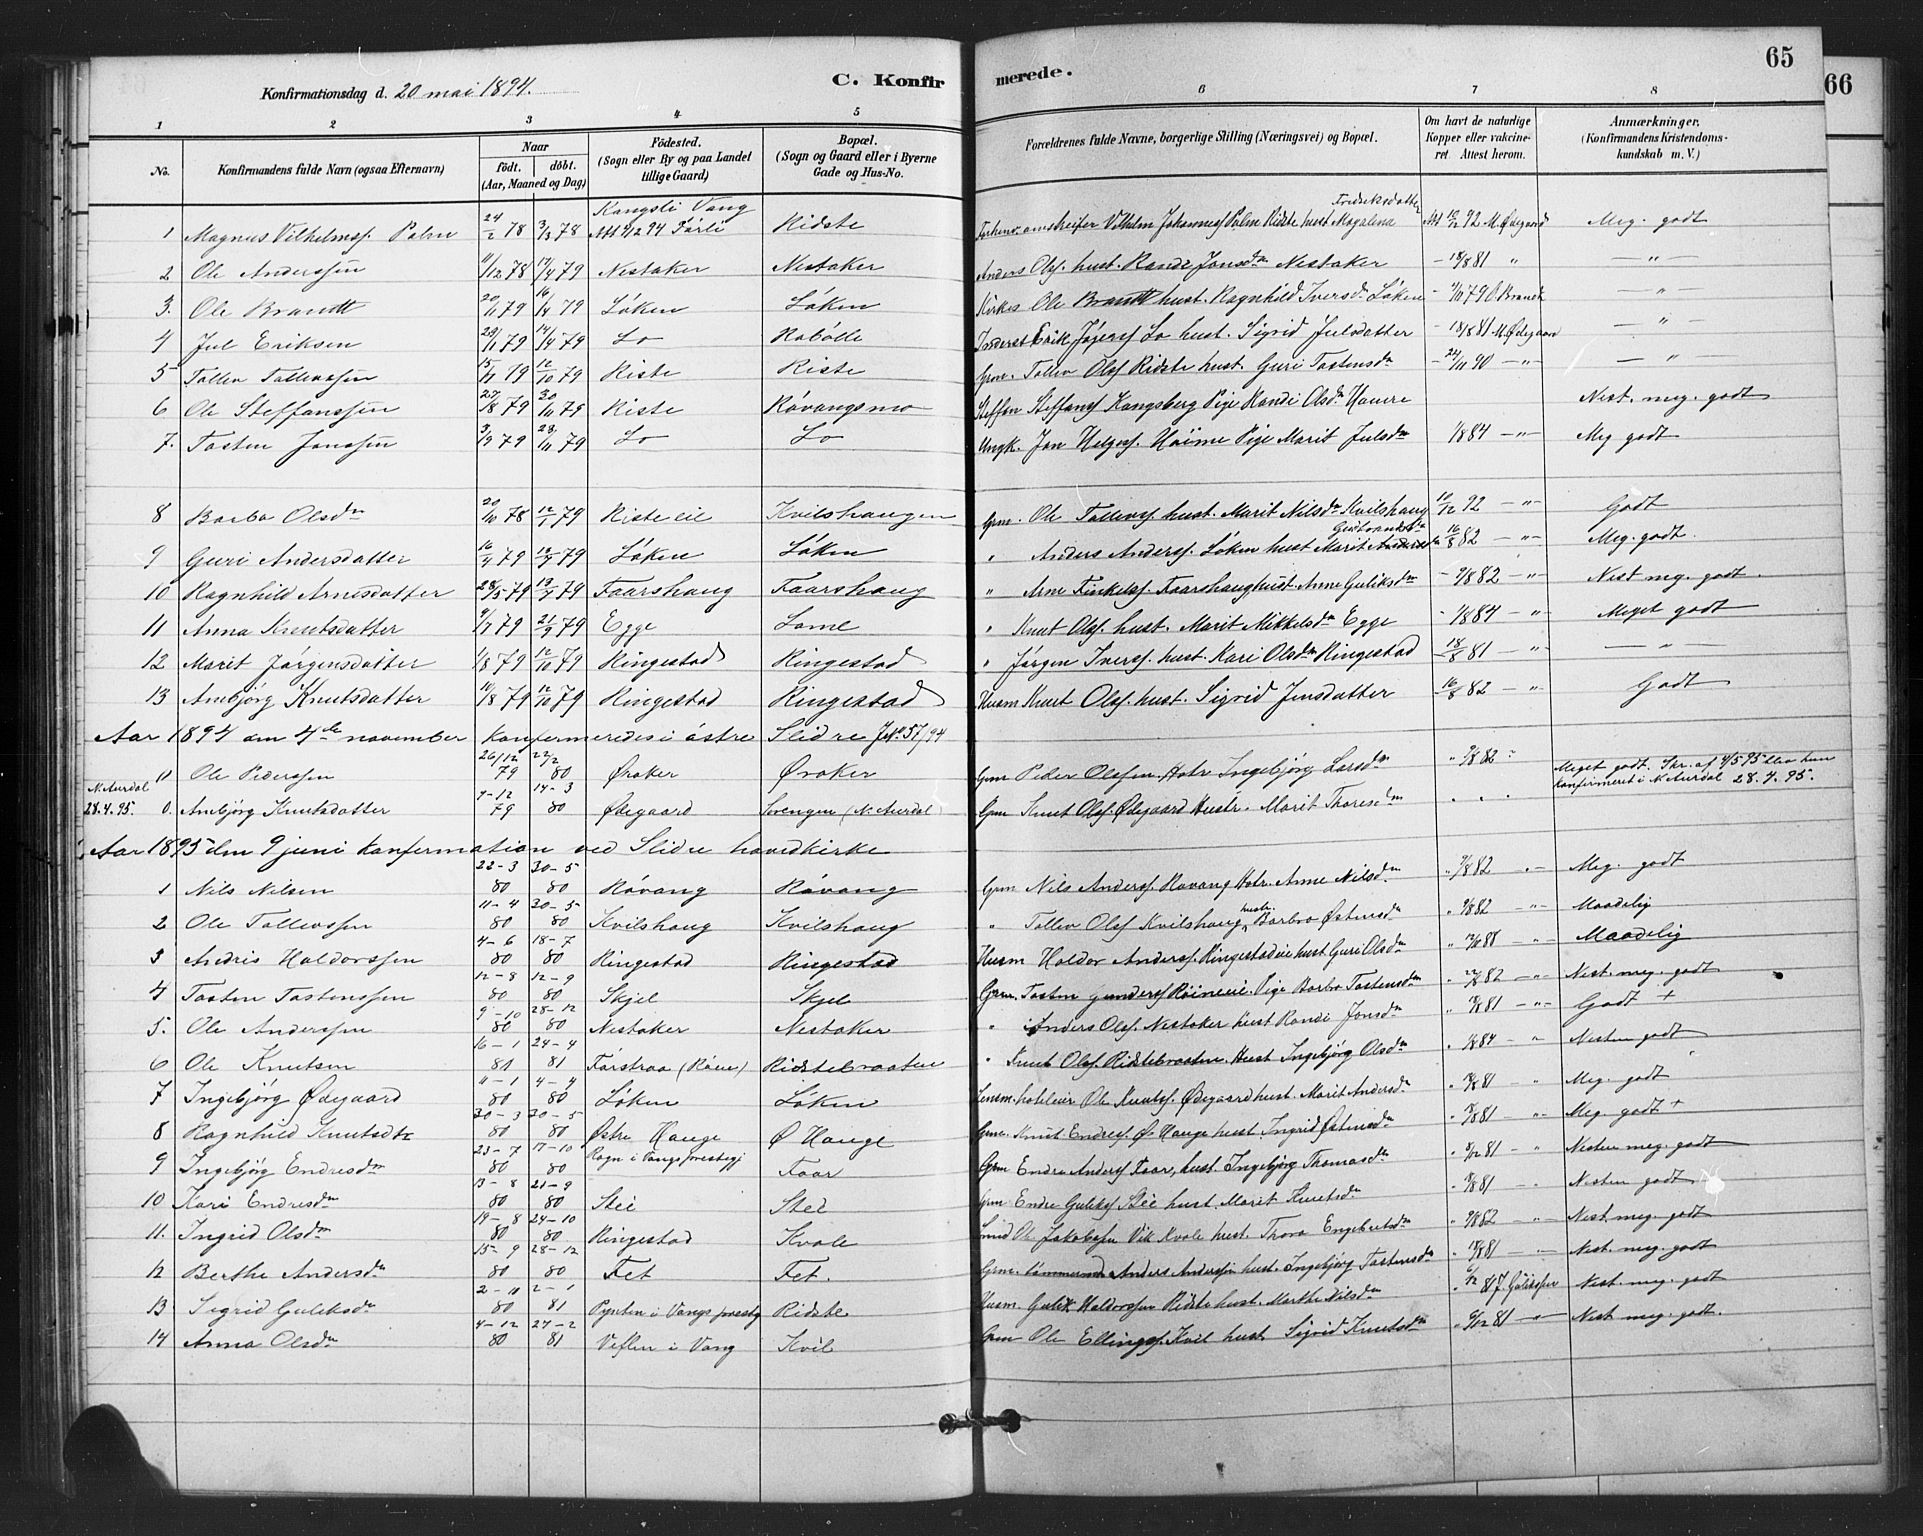 65
66
Konfirmationsdag d. 20 mai 1894. C. Konfir merede.
1 2 3 4 5 6 7 8
No. Konfirmandens fulde Navn (ogsaa Efternavn) Naar født. døbt. (Aar, Maaned og Dag) Fødested. (Sogn eller By og paa Landet tillige Gaard) Bopæl. (Sogn og Gaard eller i Byerne Gade og Hus-No. Forældrenes fulde Navne, borgerlige Stilling (Næringsvei) og Bopæl. Om havt de naturlige Kopper eller vakcineret Attest herom. Anmærkninger, (Konfirmandens Kristendomskundskab m. V.)
1 Magnus Vilhelmsf. Palm 24/2 78 3/3 78 Kangsli Vang Ridste Vilhelm Johannesf Palm Ridste hust Magdalena Fredriksdatter Att 10/12 92 M Ødegaard Meg. godt
2 Ole Anderssen 11/12 78 14/4 79 Nestaker Nestaker Anders Olsf. hust. Randi Jonsdn Nestaker - 18/8 81 " — " —
3. Ole Brandt 20/1 79 16/4 79 Løken Løken Kirkes Ole Brandt hust. Ragnhild Iversd. Løken 79 O. Brandt — " —
4 Jul Eriksen 23/1 79 14/4 79 Lo Robølle Erik Jøgersf Lo hust. Sigrid Julsdatter - 18/8 81 M Ødegaard — " —
5 Tollev Tollevssen 15/11 79 12/10 79 Riste Riste Grm. Tollev Olsf Ridste hust. Guri Tostensdn - 24/11 90 — " — — " —
6 Ole Steffenssen 27/8 79 30/11 79 Riste Røvangsmo Steffen Steffensf Kongsberg Pige Randi Olsdn Nest. meg. godt
7. Tosten Jonssen 3/9 79 23/11 79 Lo Lo Ungk. Jon Helgesf. Høime Pige Marit Julsdn 1/8 84 — " — Meg godt
8 Barbo Olsdn 20/10 78 12/1 79 Riste eie Kvilshaugen Grm. Ole Tollevsf. hust. Marit Nilsdn Kvilshaug 10/12 92 — " — Godt
9 Guri Andersdatter 16/4 79 79 Løken Løken " Anders Andersf. Løken hust Marit Gudbrandsdn 16/8 82 — " — Meg. godt.
10 Ragnhild Arnesdatter 28/5 79 13/7 79 Faarshaug Faarshaug " Arne Finkelsf. Faarshaug hust Anne Guliksdn - 9/8 82 — " — Nest meg. godt.
11 Anna Knutsdatter 9/7 79 21/9 79 Egge Lome " Knut Olsf. hust. Marit Mikkelsdn Egge - 1/8 84 — " Meget godt
12 Marit Jørgensdatter 1/8 79 12/10 79 Ringestad Ringestad " Jørgen Iversf. hust. Kari Olsdn Ringestad 18/8 81 — " — " —
13 Anebjørg Knutsdatter 10/8 79 12/10 79 Ringestad Ringestad Husm Knut Olsf. hust. Sigrid Jensdatter 16/8 82 — " Godt
Aar 1894 den 4de november konfirmeredes i østre Slidre Jr. 57/94
11 Ole Pederssen 26/12 79 22/2 80 Øraker Øraker Grm Peder Olssen Hstr Ingebjørg Larsdn " 9/8 82 " Meget godt. Skr. af 4/5 95 blev hun konfirmeret i N. Aurdal 28.4.95.
N. Aurdal 28.4.95. 0. Anebjørg Knutsdatter 7-12 79 14-3 80 Ødegaard Sørengen (N. Aurdal) Grm Knut Olsf. Ødegaard Hustr. Marit Thoresdn " " "
Aar 1895 den 9 juni konfermation ved Slidre hovedkirke
1 Nils Nilsen 22-3 80 30-5 80 Røvang Røvang Grm Nils Andersf. Røvang Hstr. Anne Nilsdn " 9/8 82 " — Meg. godt
2 Ole Tollevssen 11-4 80 30-5 80 Kvilshaug Kvilshaug " Tollev Olsf Kvilshaug hustr. Barbro Østensdn " 9/8 82 — " — Maadelig
3 Andris Haldorssen 4-6 80 18-7 80 Ringestad Ringestad Husm Haldor Andersf. Ringestadeie hust Guri Olsdn — " Maadelig
4 Tosten Tostenssen 12-8 80 12-9 80 Skjel Skjel Grm. Tosten Gundersf Røineeie. Pige Barbo Tostensdn 82 — " — Nest. meg. godt
5. Ole Anderssen 9-10 80 28-12 80 Nestaker Nestaker " Anders Olsf. Nestaker hust Randi Jonsdn " 81 — " — Godt +
6 Ole Knutsen 16-1 81 24-4 81 Førstraa (Røine) Ridstebraaten " Knut Olsf. Ridstebraaten. Hust Ingebjørg Olsdn " 1/8 84 — " Nesten godt
7 Ingebjørg Ødegaard 11-1 80 4-4 80 Løken Løken Lensm. Ole Knutsf. Ødegaard hust. Marit Andersdn " 81 — " Meg. godt
8 Ragnhild Knutsdtr 20-3 80 30-5 80 Østre Hauge Ø Hauge Grm. Knut Endresf. Ø. Hauge hust. Ingrid Østensdn " 81 — " — Meg godt +
9 Ingebjørg Endresdn 23-7 80 17-10 80 Rogn i Vangs prestegj Faar Grm Endre Andersf Faar, hust. Ingebjørg Thomasdn " 81 — " Nesten meg. godt
10 Kari Endresdn 13-8 80 21-9 80 Stee Stee Grm Endre Guliksf Stee hust. Marit Knutsdn " 81 — " Nesten godt
11. Ingrid Olsdn 19-8 80 24-10 80 Ringestad Kvale Smed Ole Jakobssen Vik Kvale hust. Thora Engebretsdn " 9/8 82 — " — Nest. meg. godt
12 Berthe Andersdn 15-9 80 28-12 80 Fet Fet. Grm. tømmermd Anders Anderssen hust. Ingebjørg Tostensdn " 81 — " — Nest. meg. godt
13 Sigrid Guliksdn 2-11 80 2-1 81 Pynten i Vangs prestg Ridste Husm Gulik Haldorssen Ridste hust. Marthe Nilsdn " Guliksen Nest. meg. godt
14 Anna Olsdn 4-12 80 27-2 81 Veflen i Vang Kvil Grm Ole Ellingsf. Kvil hust. Sigrid Knutsdn " 6/12 81 — " — Nest meg. godt.